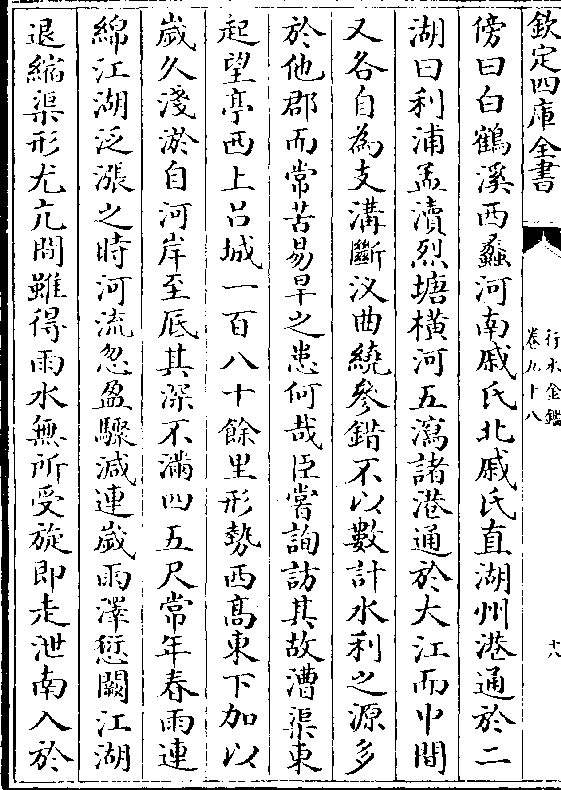 欽定四庫全書
行水金鑑
卷九十八
十八
傍曰白鶴溪西蠡河南戚氏北戚氏直湖州港通於二
湖曰利浦孟瀆烈塘橫河五瀉諸港通於大江而中間
又各自為支溝斷汊曲繞參錯不以數計水利之源多
於他郡而常苦易旱之患何哉臣嘗詢訪其故漕渠東
起望亭西上吕城一百八十餘里形勢西高東下加以
歲久淺淤自河岸至底其深不滿四五尺常年春雨連
綿江湖泛漲之時河流忽盈驟減連歲雨澤愆闕江湖
退縮渠形尤亢間雖得雨水無所受旋即走泄南入於